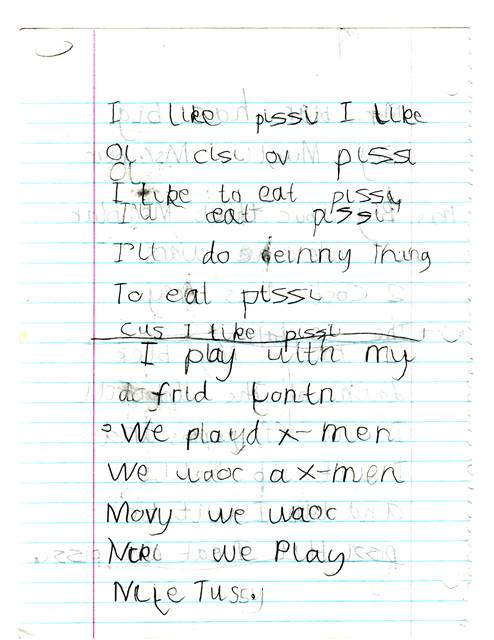 I like pissi I like
Ol cis ov pissi
I like to eat pissy
I'll eat pissi
I'll do einny Thing
To eat pissi
cus I like pissi
I play with my
frid
We playd x-men
We waoc a x-men
Movy we waoc
we Play
Tussy